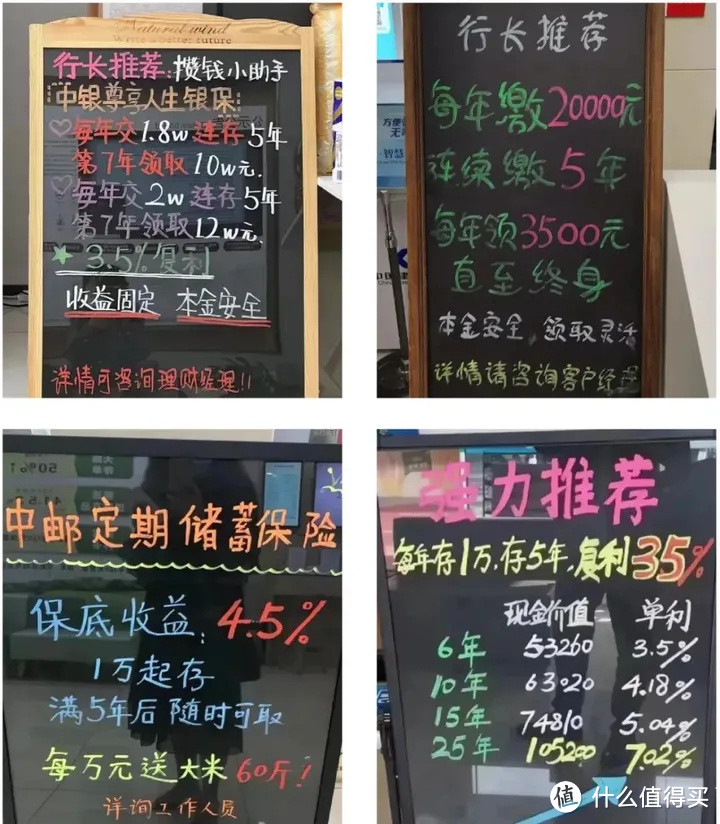 Natural wind
Write a better future
行长推荐:攒钱小助手
中银尊享人生银保
♡每年交1.8w连存5年
第7年领取10w元.
♡每年交2w连存5年
第7年领取12w元.
★3.5%复利
收益固定 本金安全
详情可咨询理财经理!!
行长推荐
每年缴20000元
连续缴5年
每年领3500元
直至终身
本金安全,领取灵活
详情请咨询客户经理
中邮定期储蓄保险
保底收益:4.5%
1万起存
满5年后随时可取
每万元送大米60斤!
详询工作人员
强力推荐
每年存1万,存5年,复利35%
现金价值 单利
6年 53260 3.5%
10年 63020 4.18%
15年 74810 5.04%
25年 105200 7.02%
值 什么值得买